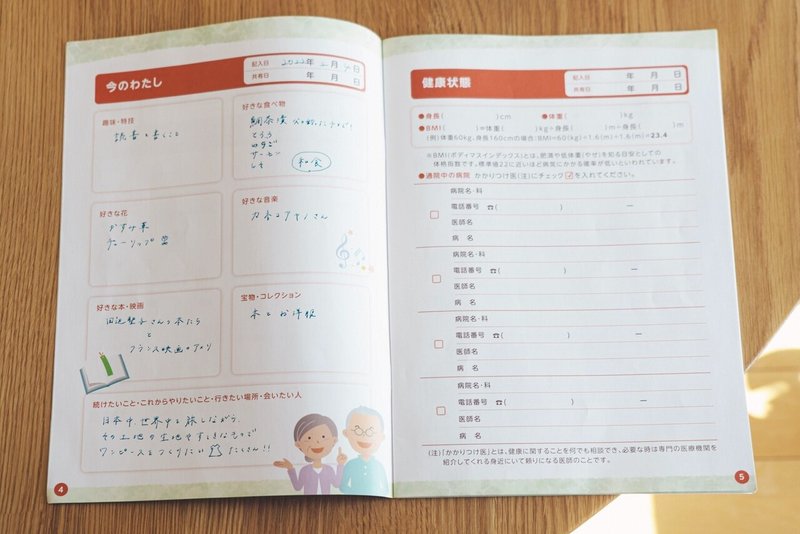 今のわたし
記入日 2022年2月4日
共有日 年 月 日
趣味・特技
読書と書くこと
好きな食べ物
鯛茶漬
とろろ
サーモン
しそ
和食
好きな花
かすみ草
チューリップ
好きな音楽
さん
好きな本・映画
田辺聖子さんの本たち
と
フランス映画のアメリ
宝物・コレクション
本とお洋服
続けたいこと・これからやりたいこと・行きたい場所・会いたい人
日本中、世界中を旅しながら、
その土地の生地やすてきなもので
ワンピースをつくりたい たくさん!!
4
健康状態
記入日 年 月 日
共有日 年 月 日
●身長( )cm ●体重( )kg
●BMI( )=体重( )kg÷身長( )m÷身長( )m
(例)体重60kg、身長160cmの場合:BMI=60(kg)÷1.6(m)÷1.6(m)=23.4
※BMI(ボディマスインデックス)とは、肥満や低体重(やせ)を知る目安としての
体格指数です。標準値22に近いほど病気にかかる確率が低いといわれています。
●通院中の病院 かかりつけ医(注)にチェック☑を入れてください。
病院名・科
電話番号 ☎( ) ー
医師名
病 名
病院名・科
電話番号 ☎( ) ー
医師名
病 名
病院名・科
電話番号 ☎( ) ー
医師名
病 名
病院名・科
電話番号 ☎( ) ー
医師名
病 名
(注)「かかりつけ医」とは、健康に関することを何でも相談でき、必要な時は専門の医療機関を
紹介してくれる身近にいて頼りになる医師のことです。
5